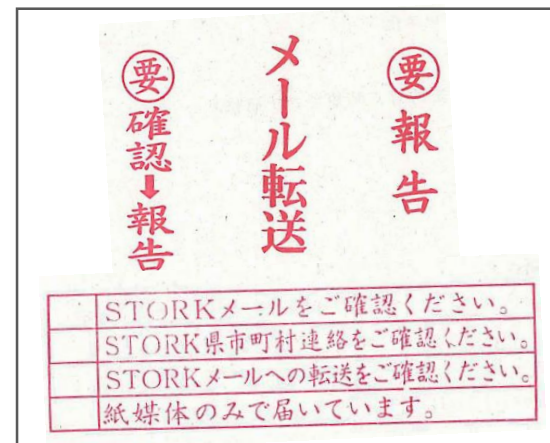 ㊟要 報告
メール転送
㊟要 確認➡報告
STORKメールをご確認ください。
STORK県市町村連絡をご確認ください。
STORKメールへの転送をご確認ください。
紙媒体のみで届いています。